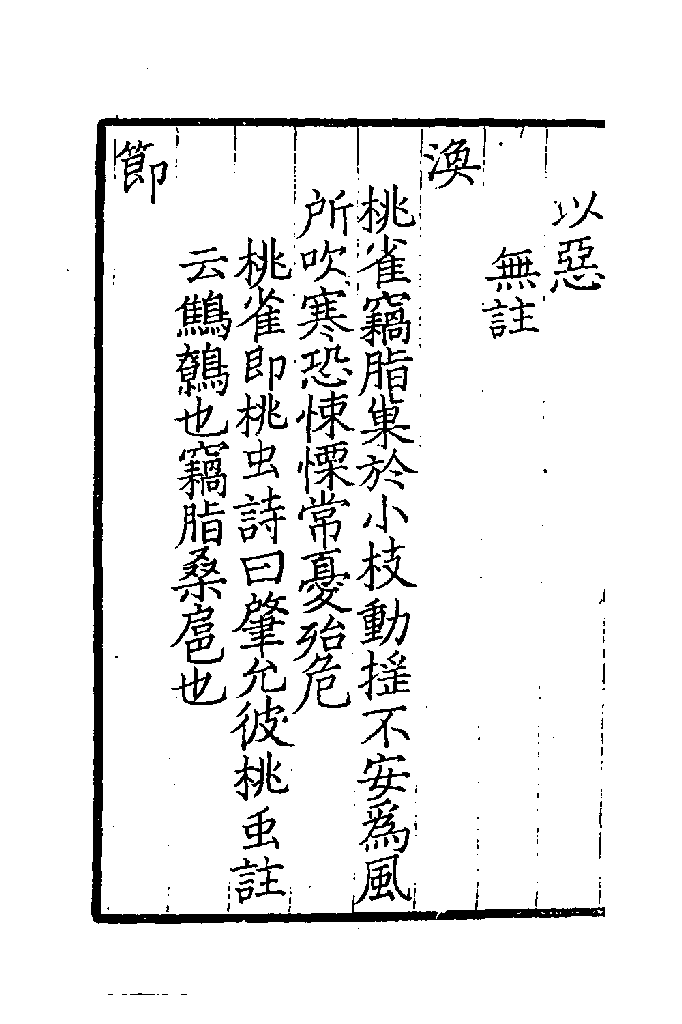 以惡
無註
渙
桃雀竊脂巢於小枝動揺不安爲風
所吹寒恐悚慄常憂殆危
桃雀即桃虫詩曰肇允彼桃虫註
云鷦鷯也竊脂桑扈也
節